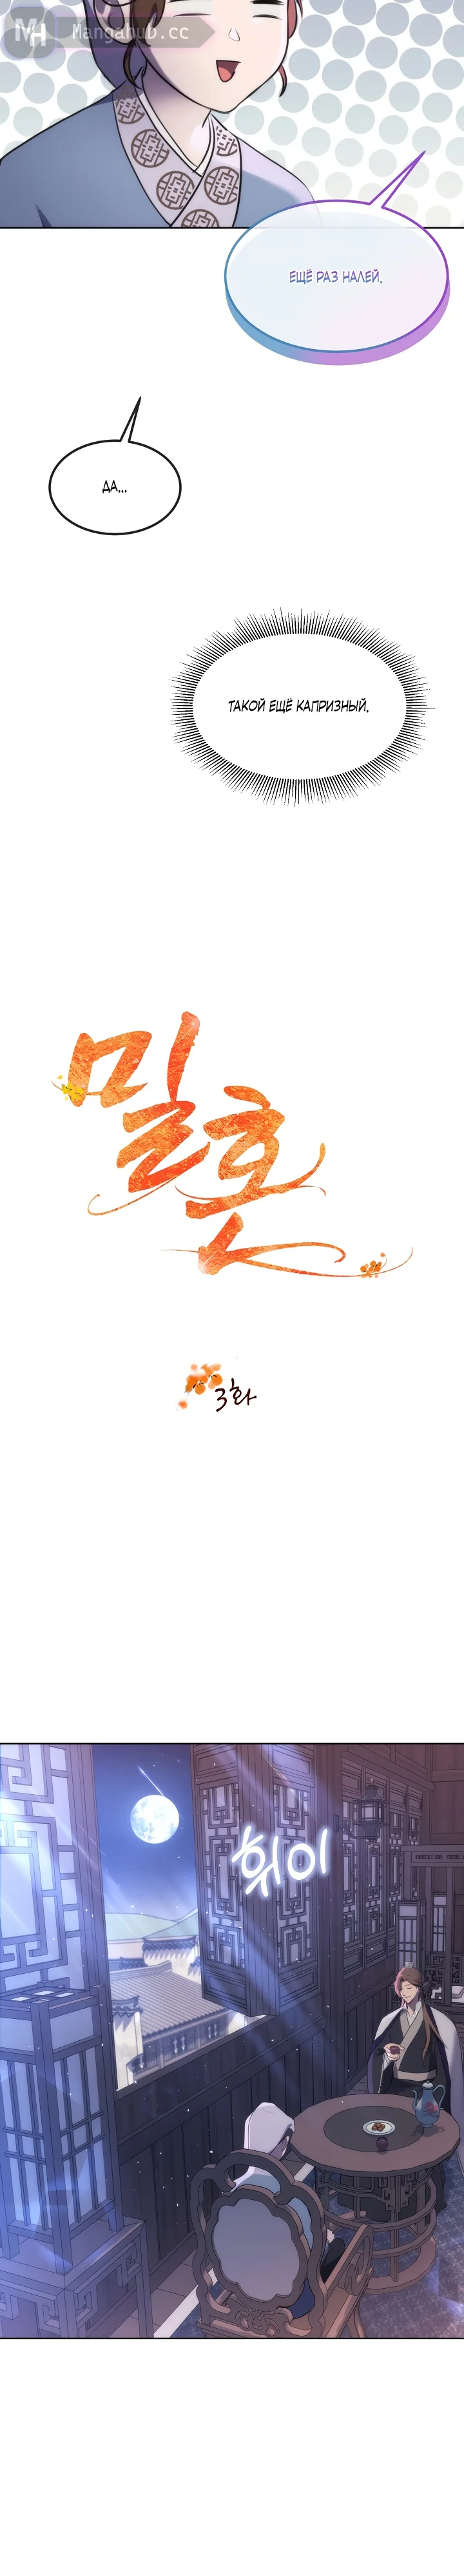 MH Mangahub.cc
ЕЩЁ РАЗ НАЛЕЙ.
ДА...
ТАКОЙ ЕЩЁ КАПРИЗНЫЙ.
밀호
3화
휘이